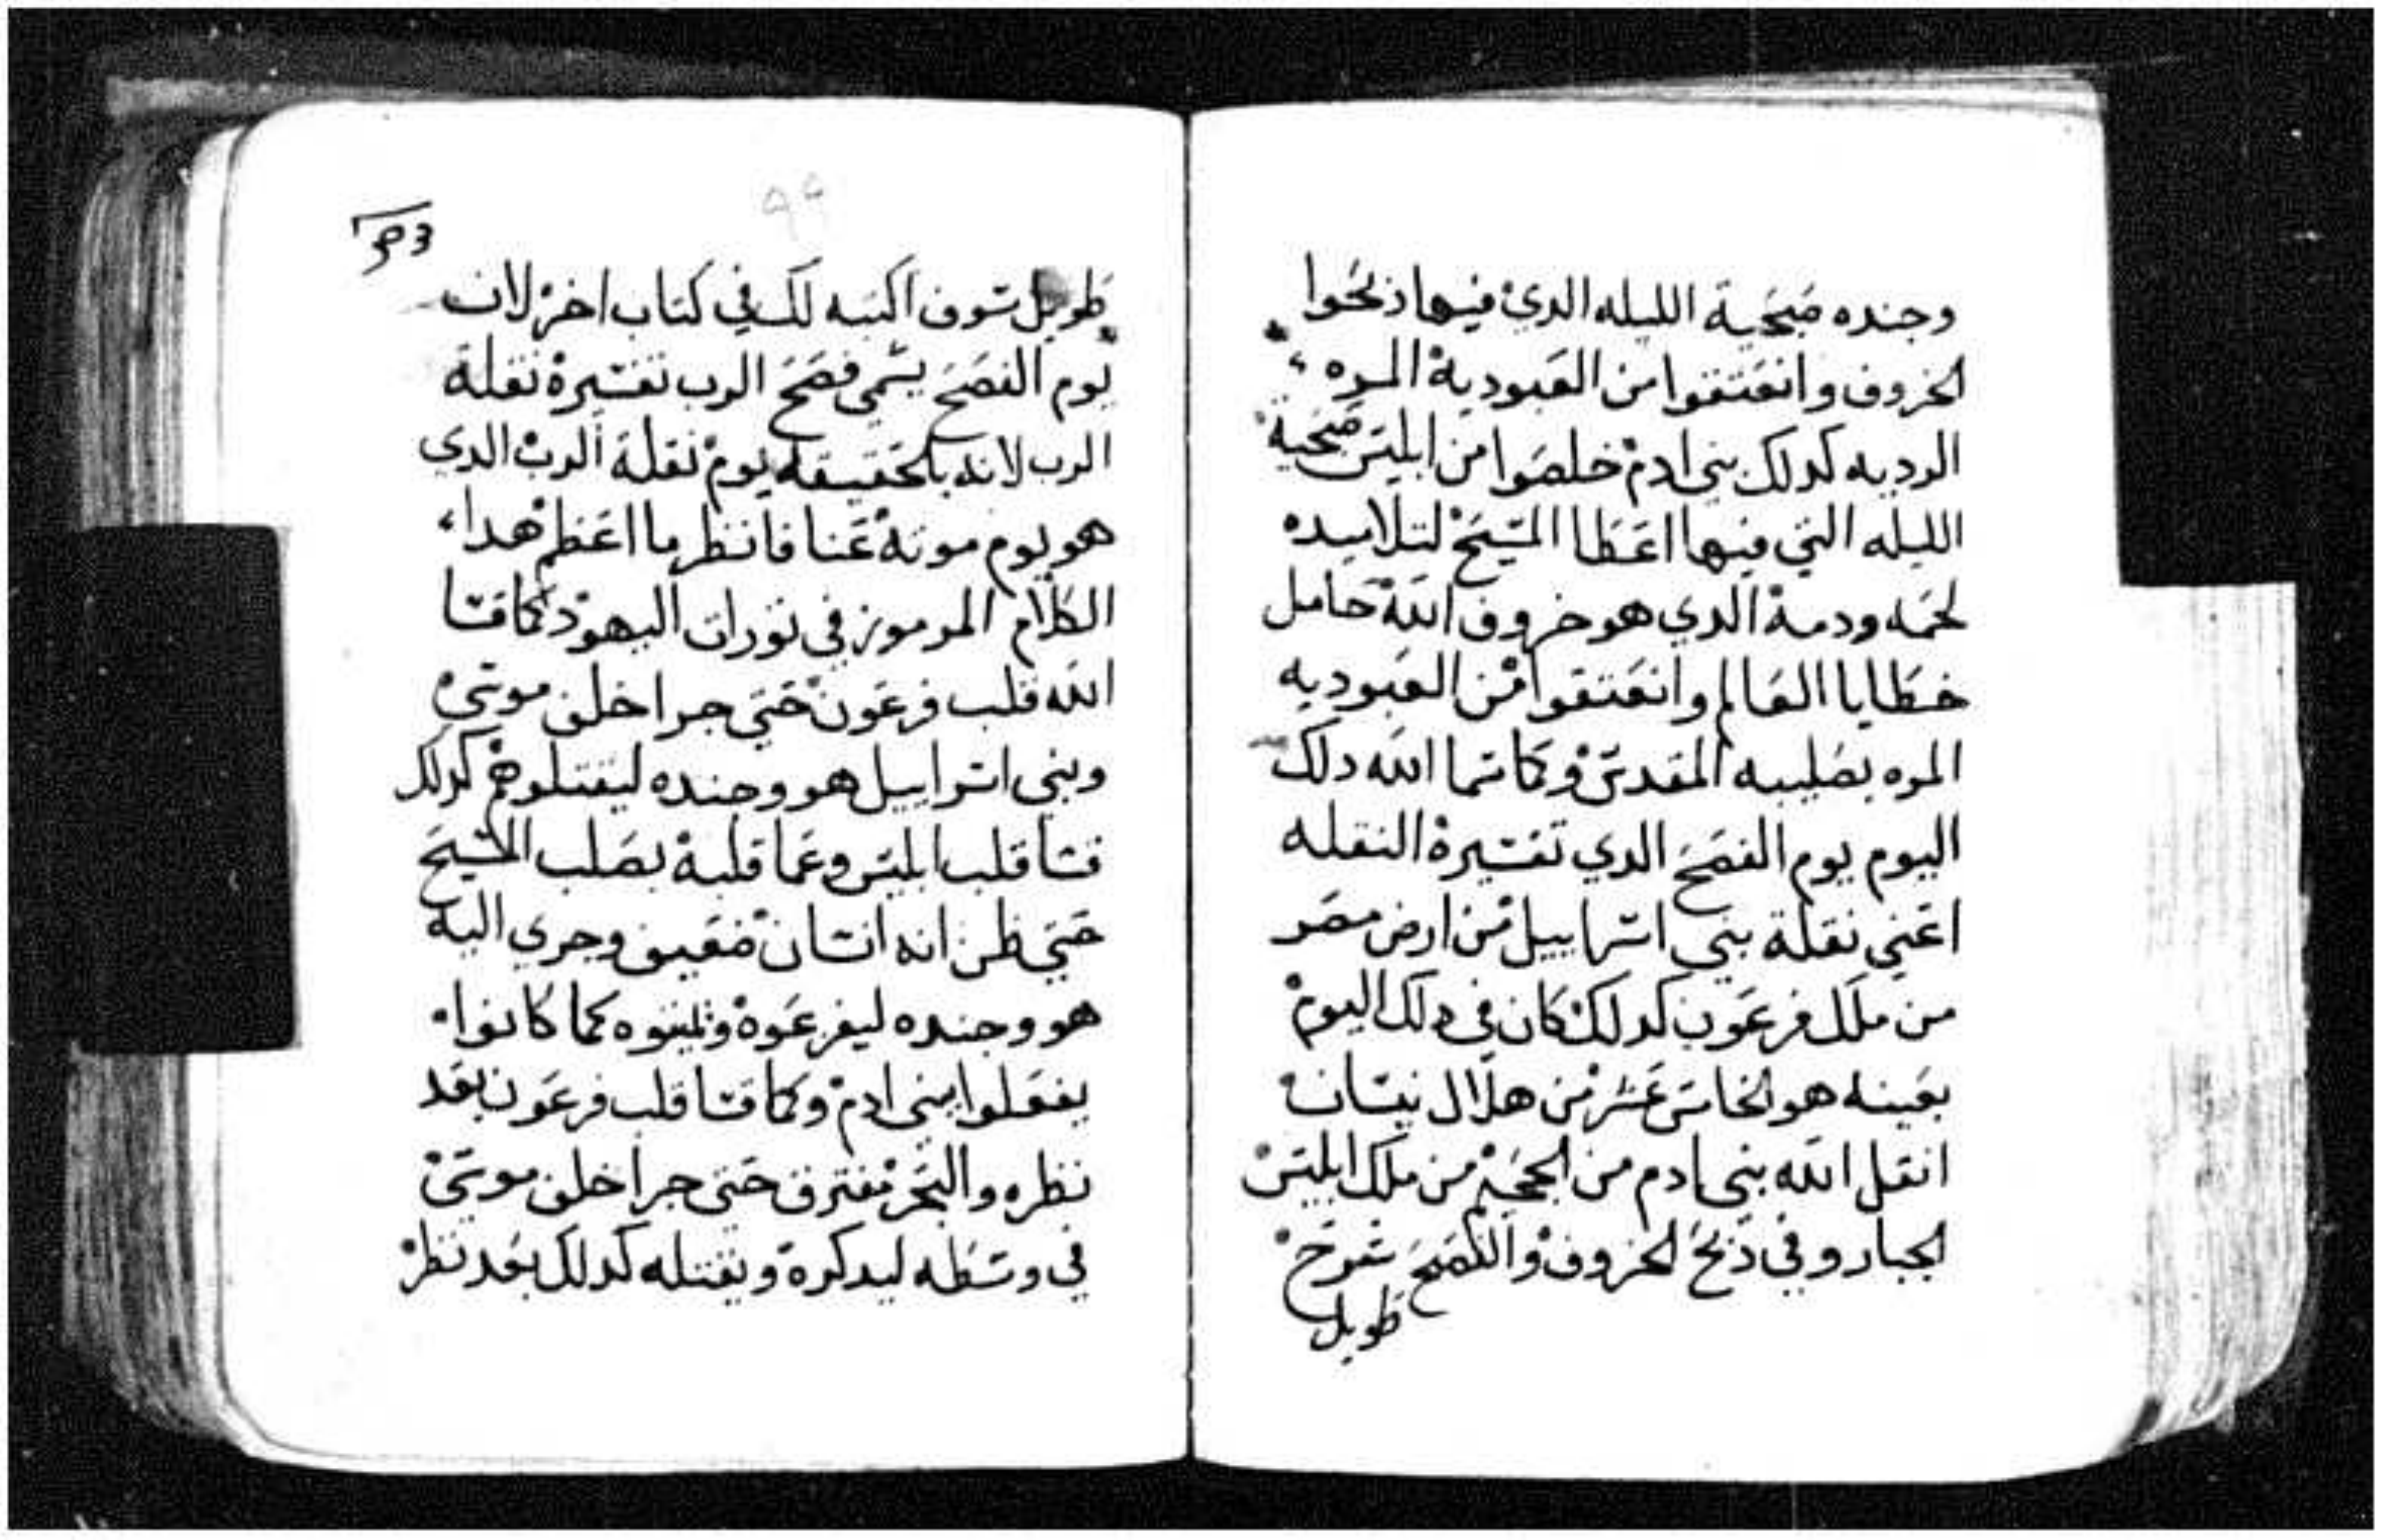 وجنده صبحية الليله الدي فيها دبحوا
الخروف وانعتقوا من العبودية المره
الرديه كدلك بني ادم خلصوا من ابليس صبحية
الليله التي فيها اعطا المسيح لتلاميده
لحمه ودمه الدي هو خروف الله حامل
خطايا العالم وانعتقوا من العبوديه
المره بصليبه المقدس وكما سما الله دلك
اليوم يوم الفصح الدي تفسيره النقله
اعني نقلة بني اسراييل من ارض مصر
من ملك فرعون كدلك كان في دلك اليوم
بعينه هو الخامس عشر من هلال نيسان
انقل الله بني ادم من الجحيم من ملك ابليس
الجبار وفي دبح الخروف والفصح شرح
طويل
٩٩
طويل سوف اكتبه لك في كتاب اخر لان
يوم الفصح يسمى فصح الرب تفسيره نقلة
الرب لانه بالحقيقه يوم نقلة الرب الدي
هو يوم موته عنا فانظر ما اعظم هدا
الكلام المرموز في تورات اليهود كما قسا
الله قلب فرعون حتى جرا خلف موسى
وبني اسراييل هو وجنده ليقتلوهم كدلك
قسا قلب ابليس وعما قلبه بصلب المسيح
حتى ظن انه انسان ضعيف وجري اليه
هو وجنده ليفزعوه كما كانوا
يفعلوا ببني ادم وكما قسا قلب فرعون بعد
نظره والبحر مفترق حتى جرا خلف موسى
في وسطه ليدركه ويقتله كدلك بعد نظر